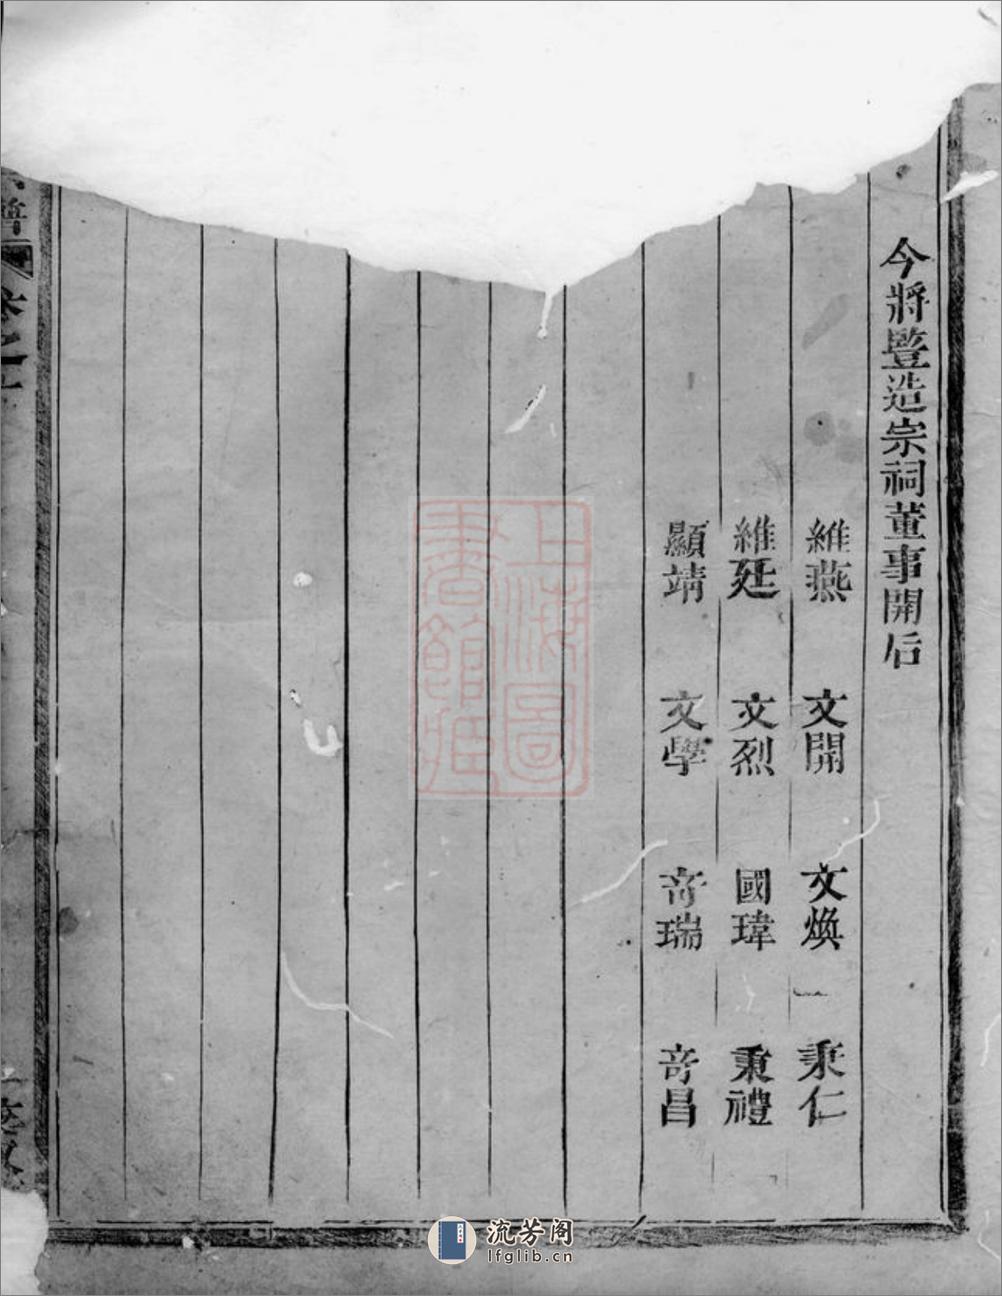 今將豎造宗祠董事開后
維燕 文開 文煥 秉仁
維廷 文烈 國瑋 秉禮
顯靖 文學 奇瑞 奇昌
譜 卷之
上海圖書館藏
流芳阁
lfglib.cn